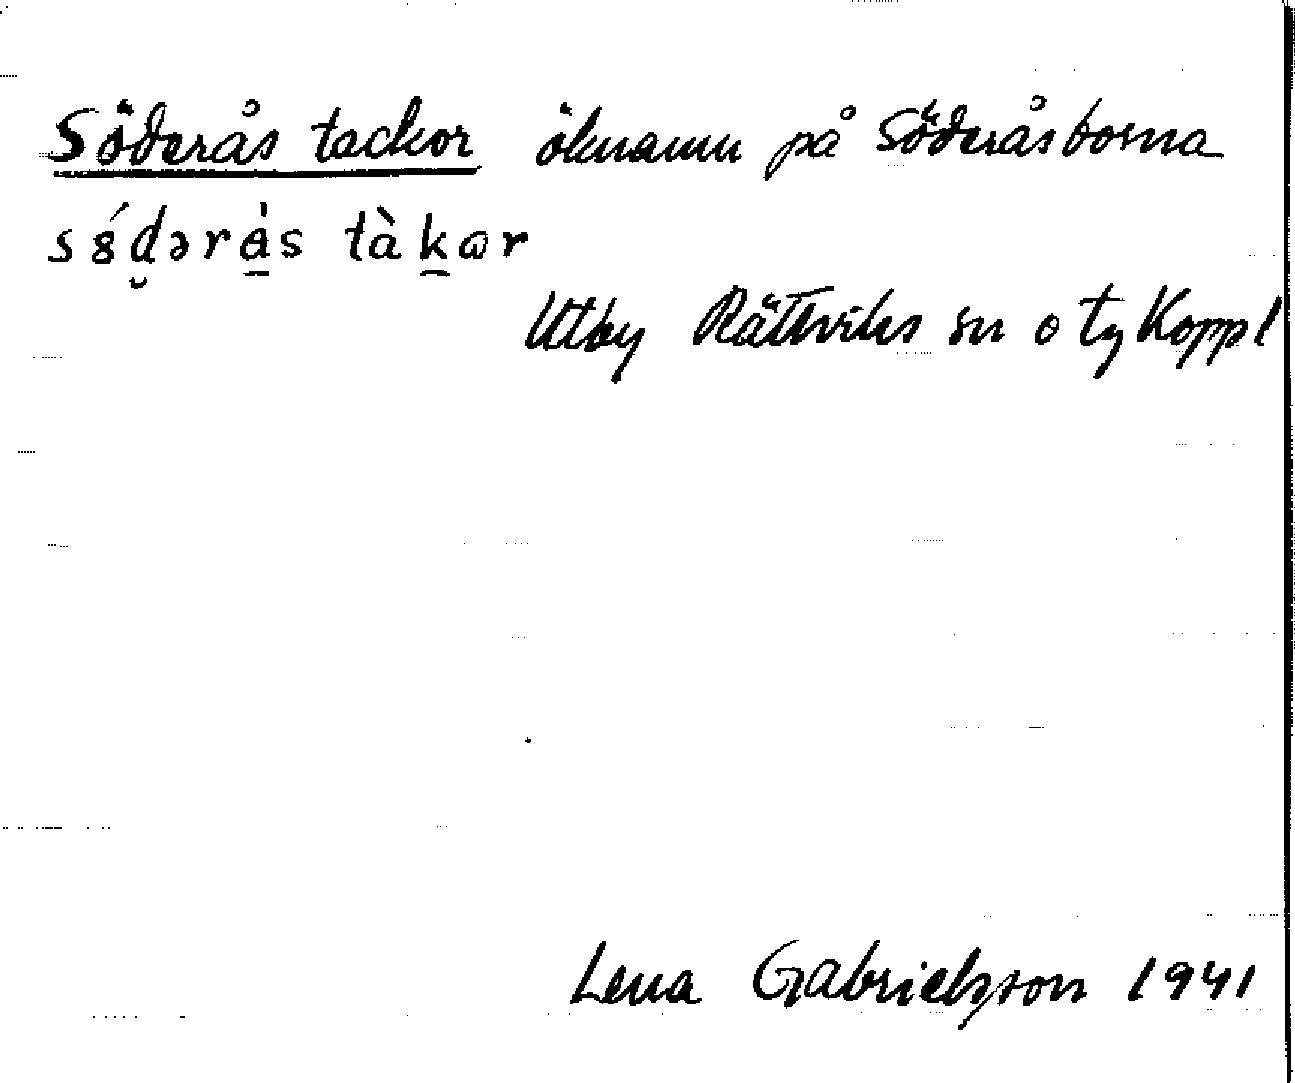 Söderås tackor öknamn på Söderåsborna
s8́d̮əra̠̍s tàk̠ɷr
Utby Rättviks sn o tg Koppl
Lena Gabrielsson 1941